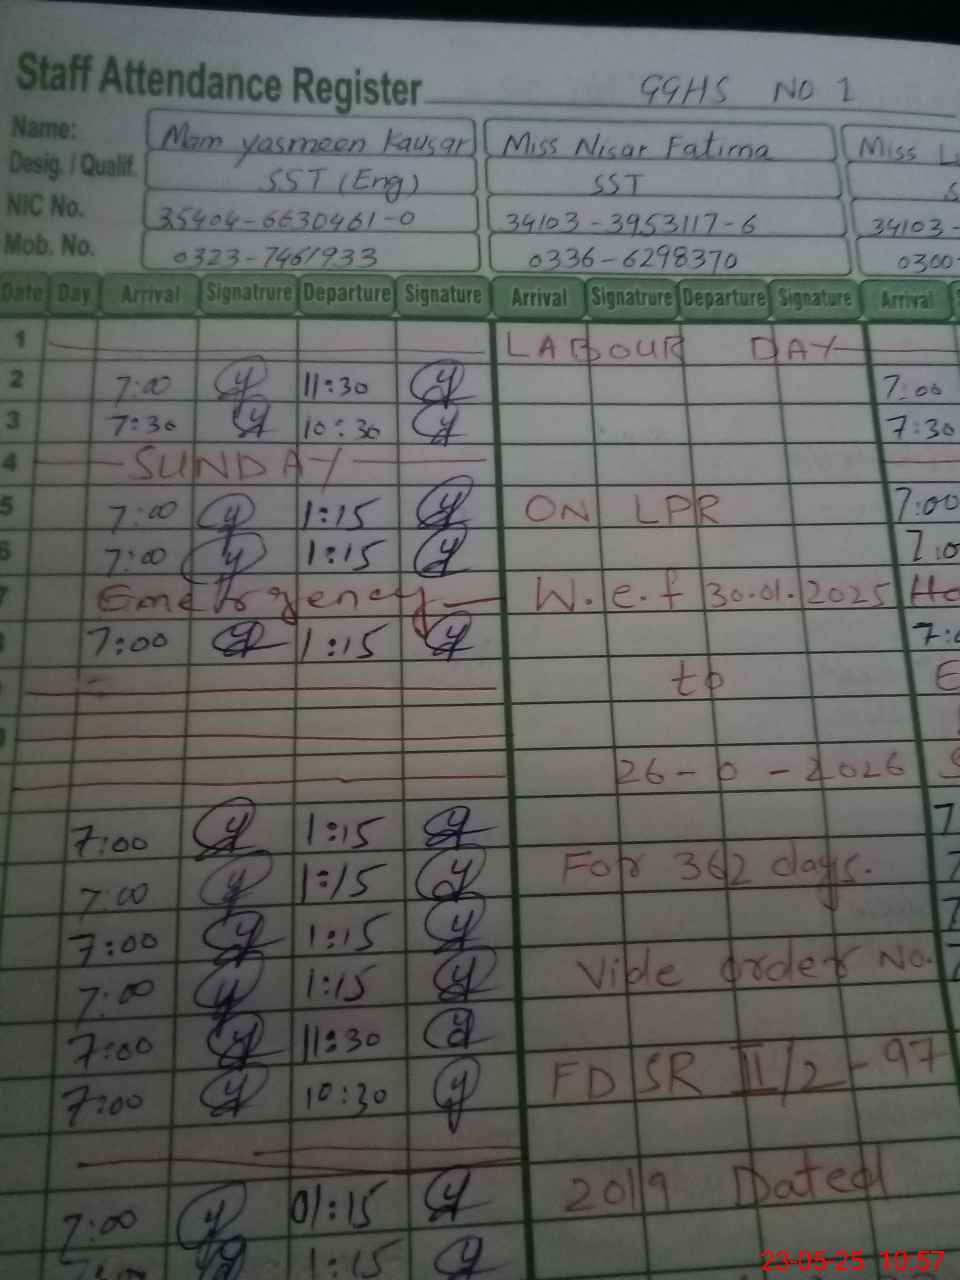 Staff Attendance Register GGHS NO 1
Name: Mam Yasmeen Kausar Miss Nisar Fatima Miss
Desig. / Qualif. SST (Eng) SST
NIC No. 35404-6630461-0 34103-3953117-6 34103-
Mob. No. 0323-7461933 0336-6298370 0300-
Date Day Arrival Signatrure Departure Signature Arrival Signatrure Departure Signature Arrival
1 LABOUR DAY
2 7:00 y 11:30 y 7:00
3 7:30 y 10:30 y 7:30
4 SUNDAY
5 7:00 y 1:15 y ON LPR 7:00
6 7:00 y 1:15 y 7:0
7 Emergency W.e.f 30.01.2025 Ho
8 7:00 y 1:15 y 7:0
to E
26-0-2026 S
7:00 y 1:15 y 7
7:00 y 1:15 y For 362 days. 7
7:00 y 1:15 y 7
7:00 y 1:15 y Vide order No. 7
7:00 y 11:30 y
7:00 y 10:30 y FD SR II/2-97
7:00 y 01:15 y 2019 Dated
1:15 y
23-05-25 10:57